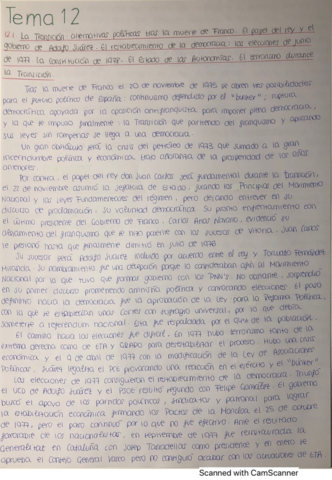 Tema 12
12.1. La Transición: alternativas políticas tras la muerte de Franco. El papel del rey y el
gobierno de Adolfo Suárez. El restablecimiento de la democracia: las elecciones de junio
de 1977. La Constitución de 1978. El Estado de las Autonomías. El terrorismo durante
la Transición.
Tras la muerte de Franco el 20 de noviembre de 1975 se abren tres posibilidades
para el futuro político de España: continuismo defendido por el "búnker", ruptura
democrática apoyada por la oposición antifranquista para imponer plena democracia,
y la que se impuso finalmente la Transición que partiendo del franquismo y
sus leyes sin romperlas se llega a una democracia.
Un gran obstáculo será la crisis del petróleo de 1973 que sumado a la gran
incertidumbre política y económica. Era añoranza de la prosperidad de los años
anteriores.
Por contra, el papel del rey don Juan Carlos será fundamental durante la transición.
el 22 de noviembre asumió la Jefatura de Estado, jurando los Principios del Movimiento
Nacional y las Leyes Fundamentales del régimen, pero dejando entrever en su
discurso de proclamación su voluntad democrática. Su pronto enfrentamiento con
el último presidente del Gobierno de Franco, Carlos Arias Navarro, evidenció su
alejamiento del franquismo que se hizo patente con los sucesos de Vitoria. Juan Carlos
le presionó hasta que finalmente dimitió en julio de 1976.
Su sucesor será Adolfo Suárez incluido por acuerdo entre el rey y Torcuato Fernández
Miranda. Su nombramiento fue una decepción porque lo consideraban afín al Movimiento
Nacional por lo que tuvo que formar gobierno con los No constante, sorprendió
en su primer discurso prometiendo amnistía política y convocando elecciones. El paso
definitivo hacia la democracia fue la aprobación de la Ley para la Reforma Política,
con la que se establecían unas Cortes con sufragio universal, por lo que debía
someterse a referéndum nacional. Ésta fue respaldada por el 94% de la población.
El camino hacia las elecciones fue difícil. En 1977 hubo terrorismo tanto de la
extrema derecha como de ETA y GRAPO para desestabilizar el proceso. Hubo una crisis
económica, y el 9 de abril de 1977 con la modificación de la Ley de Asociaciones
Políticas, Suárez legaliza el PCE provocando una reacción en el ejército y el "búnker".
Las elecciones de 1977 consiguieron el restablecimiento de la democracia. Triunfó
el UCD de Adolfo Suárez y el PSOE resultó segundo con Felipe González. El gobierno
buscó el apoyo de los partidos políticos, sindicatos y patronal para lograr
la estabilización económica firmando los Pactos de la Moncloa el 25 de octubre
de 1977, pero el paro continuó por lo que no fue efectivo. Ante el resultado
favorable de los nacionalistas, en septiembre de 1977 fue restablecida la
Generalitat en Cataluña con Josep Tarradellas como presidente y en enero se
aprueba el Consejo General Vasco pero no consiguió acabar con las actuaciones de ETA
Scanned with CamScanner